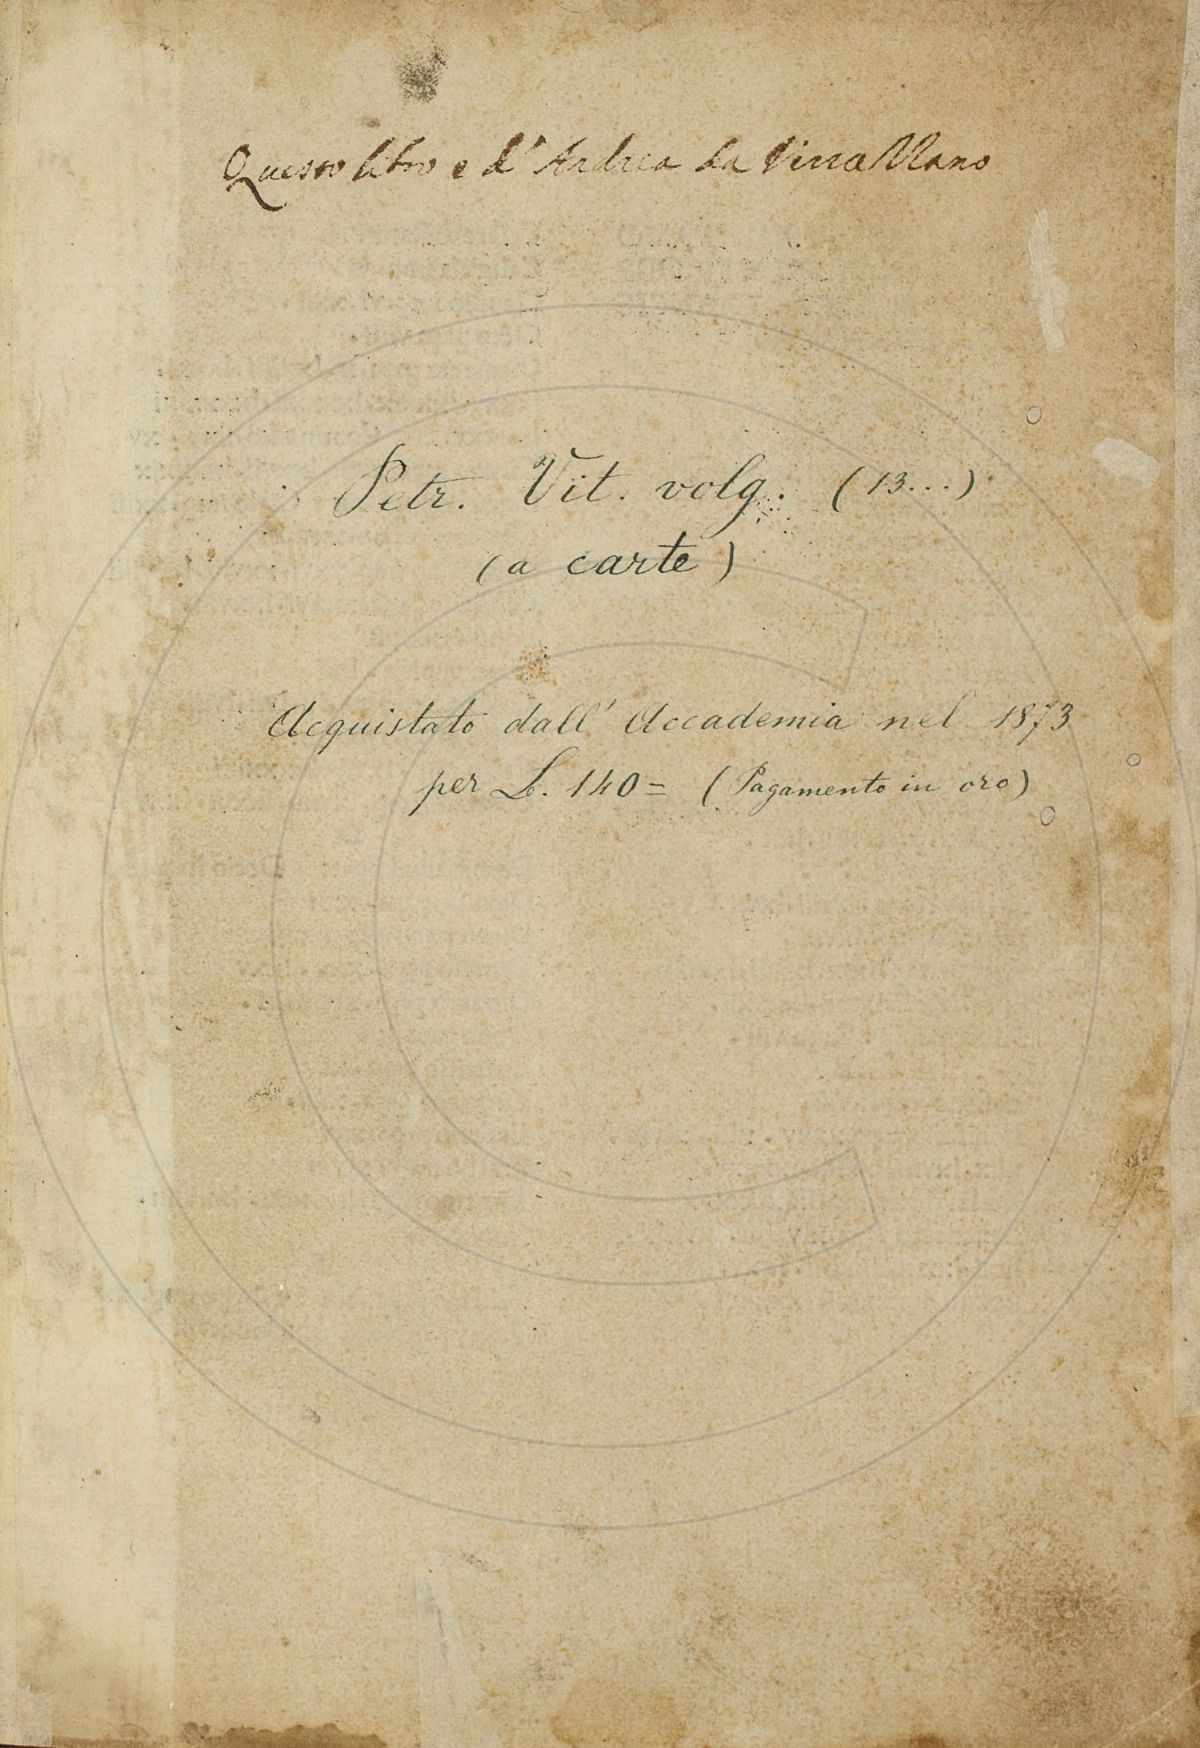 Questo libro e d'Andrea da Verrazzano
Petr. Vit. volg. (13...)
(a carte)
Acquistato dall'Accademia nel 1873
per L. 140= (Pagamento in oro)